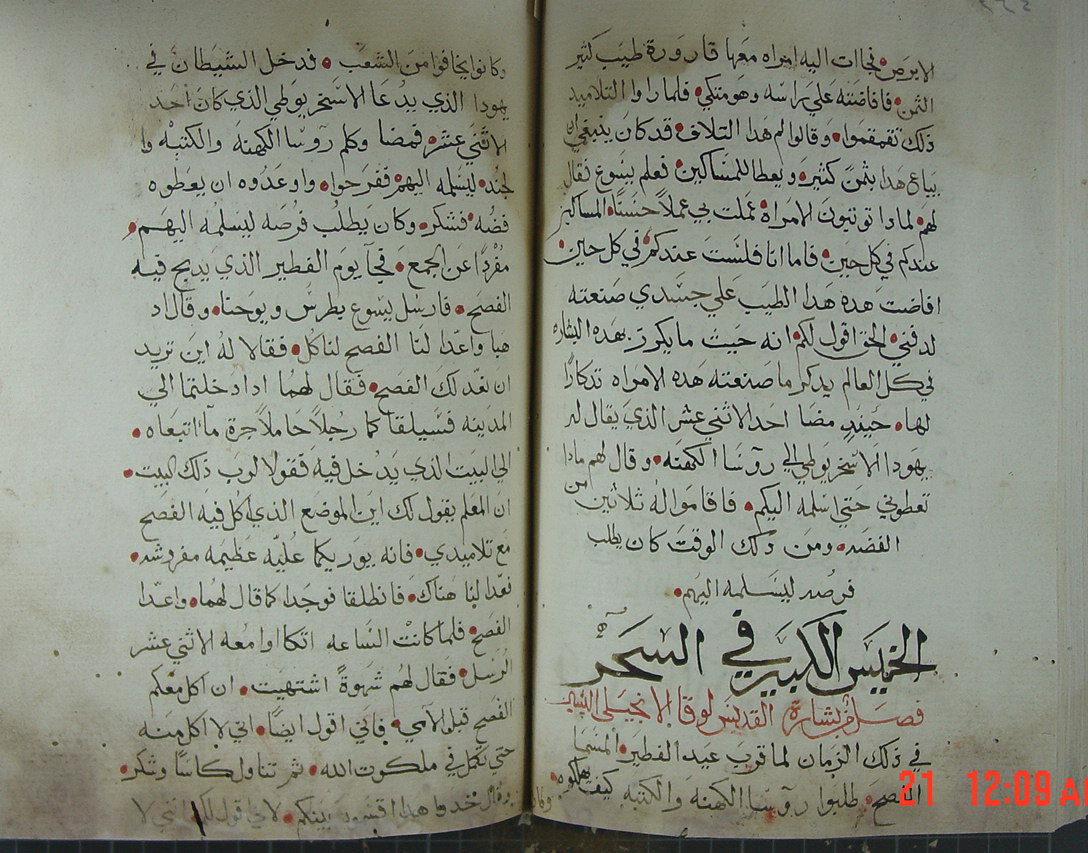 الابرص فجاات اليه امراه معها قارورة طيب كثير
الثمن فافاضته علي راسه وهو متكي فلما راوا التلاميد
ذلك تقمقموا وقالوا لم هدا التلاف قد كان ينبغي ان
يباع هدا بثمن كثير ويعطا للمساكين فعلم يسوع فقال
لهم لمادا توتبون الامراه عملت بي عملاً حسنا المساكين
عندكم في كل حين فاما انا فلست عندكم في كل حين
افاضت هده هدا الطيب علي جسدي صنعته
لدفني الحق اقول لكم انه حيث ما يكرز بهده البشاره
في كل العالم يدكر ما صنعته هده الامراه تدكارًا
لها حينيدٍ مضا احد الاثني عشر الذي يقال له
يهودا الاسخريوطي الي روسا الكهنه وقال لهم مادا
تعطوني حتي اسلمه اليكم فاقاموا له ثلاثين من
الفضه ومن دلك الوقت كان يطلب
فرصه ليسلمه اليهم
الخميس الكبير في السحر
فصل من بشارة القديس لوقا الانجيلي البشير
في ذلك الزمان لما قرب عيد الفطير المسما
الفصح طلبوا روسا الكهنه والكتبه كيف يهلكوه
وكانوا
وكانوا يخافوا من الشعب فدخل الشيطان في
يهودا الذي يدعا الاسخريوطي الذي كان احد
الاثني عشر فمضا وكلم روسا الكهنه والكتبه وا
لجند ليسلمه اليهم ففرحوا واوعدوه ان يعطوه
فضه فشكر وكان يطلب فرصه ليسلمه اليهم
مفردًا عن الجمع فجآ يوم الفطير الذي يدبح فيه
الفصح فارسل يسوع بطرس ويوحنا وقال اد
هبا واعدا لنا الفصح لناكل فقالا له اين تريد
ان نعد لك الفصح فقال لهما ادا دخلتما الي
المدينه فسيلقاكما رجلاً حاملاً جرة ماء اتبعاه
الي البيت الذي يدخل فيه فقولا لرب ذلك البيت
ان المعلم يقول لك اين الموضع الذي اكل فيه الفصح
مع تلاميدي فانه يوريكما عليه عظيمه مفروشه
فعدا لنا هناك فانطلقا فوجدا كما قال لهما واعدا
الفصح فلما كانت الساعه اتكا اوا معه الاثني عشر
الرسل فقال لهم شهوةً اشتهيت ان اكل معكم
الفصح قبل الامي فاني اقول ايضًا اني لا اكل منه
حتي يكمل في ملكوت الله ثم تناول كاسًا وشكر
وقال خدوا هدا اقتسموه بينكم لاني اقول لكم انني لا
21 12:09 A